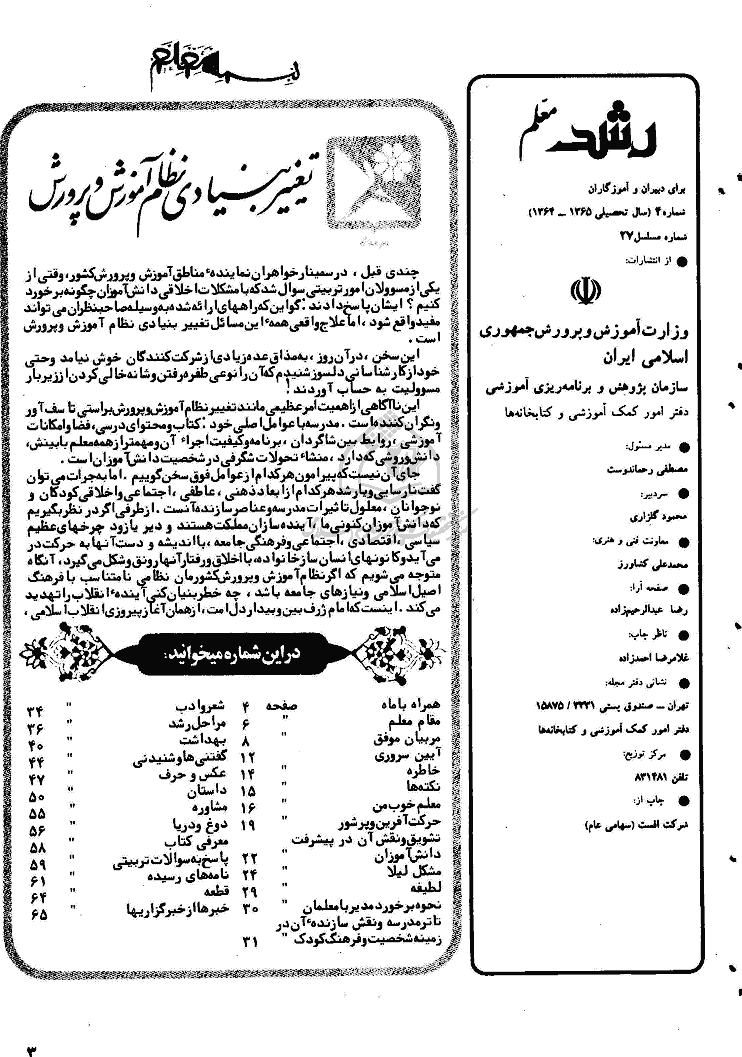 بسمه تعالی
رشد معلم
برای دبیران و آموزگاران
شماره ۴ (سال تحصیلی ۱۳۶۵ ـ ۱۳۶۴)
شماره مسلسل ۲۷
از انتشارات:
وزارت آموزش و پرورش جمهوری
اسلامی ایران
سازمان پژوهش و برنامه‌ریزی آموزشی
دفتر امور کمک آموزشی و کتابخانه‌ها
مدیر مسئول:
مصطفی رحماندوست
سردبیر:
محمود گلزاری
معاونت فنی و هنری:
محمدعلی کشاورز
صفحه آرا:
رضا عبدالرحیم‌زاده
ناظر چاپ:
غلامرضا احمدزاده
نشانی دفتر مجله:
تهران ـ صندوق پستی ۳۳۳۱ / ۱۵۸۷۵
دفتر امور کمک آموزشی و کتابخانه‌ها
مرکز توزیع:
تلفن ۸۳۱۴۸۱
چاپ از:
شرکت افست (سهامی عام)
تغییر بنیادی نظام آموزش و پرورش
چندی قبل ، در سمینار خواهران نماینده‌ٔ مناطق آموزش و پرورش کشور، وقتی از
یکی از مسوولان امور تربیتی سوال شد که با مشکلات اخلاقی دانش‌آموزان چگونه برخورد
کنیم ؟ ایشان پاسخ دادند : گو این که راههای ارائه شده به وسیله صاحبنظران می تواند
مفید واقع شود ، اما علاج واقعی همه‌ٔ این مسائل تغییر بنیادی نظام آموزش و پرورش
است .
این سخن ، در آن روز ، به مذاق عده زیادی از شرکت کنندگان خوش نیامد وحتی
خود از کارشناسانی دلسوز شنیدم که آن را نوعی طفره رفتن و شانه خالی کردن از زیر بار
مسوولیت به حساب آوردند !
این ناآگاهی از اهمیت امر عظیمی مانند تغییر نظام آموزش و پرورش براستی تاسف آور
و نگران کننده است . مدرسه با عوامل اصلی خود : کتاب و محتوای درسی، فضا و امکانات
آموزشی ، روابط بین شاگردان ، برنامه و کیفیت اجراءِ آن و مهمتر از همه معلم با بینش،
دانش و روشی که دارد ، منشاءِ تحولات شگرفی در شخصیت دانش آموزان است .
جای آن نیست که پیرامون هر کدام از عوامل فوق سخن گوییم . اما به جرات می توان
گفت نارسایی و یا رشد هر کدام از ابعاد ذهنی ، عاطفی ، اجتماعی و اخلاقی کودکان و
نوجوانان ، معلول تاثیرات مدرسه و عناصر سازنده آنست . از طرفی اگر در نظر بگیریم
که دانش آموزان کنونی ما ، آینده سازان مملکت هستند و دیر یا زود چرخهای عظیم
سیاسی ، اقتصادی ، اجتماعی و فرهنگی جامعه ، با اندیشه و دست آنها به حرکت در
می آید و کانونهای انسان ساز خانواده ، با اخلاق و رفتار آنها رونق و شکل می گیرد ، آنگاه
متوجه می شویم که اگر نظام آموزش و پرورش کشورمان نظامی نامتناسب با فرهنگ
اصیل اسلامی و نیازهای جامعه باشد ، چه خطر بنیان کنی آینده‌ٔ انقلاب را تهدید
می کند . اینست که امام ژرف بین و بیدار دل امت ، از همان آغاز پیروزی انقلاب اسلامی ،
در این شماره میخوانید:
همراه با ماه صفحه ۴
مقام معلم " ۶
مربیان موفق " ۸
آیین سروری ۱۲
خاطره " ۱۴
نکته‌ها ۱۵
معلم خوب من " ۱۶
حرکت آفرین و پر شور " ۱۹
تشویق و نقش آن در پیشرفت
دانش آموزان " ۲۲
مشکل لیلا " ۲۴
لطیفه " ۲۹
نحوه برخورد مدیر با معلمان " ۳۰
تاتر مدرسه و نقش سازنده‌ٔ آن در
زمینه شخصیت و فرهنگ کودک " ۳۱
شعر و ادب " ۳۴
مراحل رشد " ۳۶
بهداشت " ۴۰
گفتنی ها و شنیدنی " ۴۴
عکس و حرف " ۴۷
داستان " ۵۰
مشاوره " ۵۵
دوغ و دریا " ۵۶
معرفی کتاب " ۵۸
پاسخ به سوالات تربیتی " ۵۹
نامه‌های رسیده " ۶۱
قطعه " ۶۴
خبرها از خبرگزاریها " ۶۵
۳